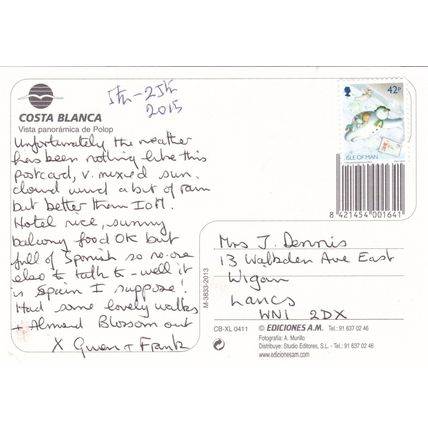 COSTA BLANCA
Vista panorámica de Polop
5th - 25th
2015
Unfortunately the weather
has been nothing like this
postcard, v. mixed sun,
cloud wind a bit of rain
but better than IoM.
Hotel nice, sunny
balcony food OK but
full of Spanish so no-one
else to talk to - well it
is Spain I suppose!
Had some lovely walks
+ Almond Blossom out
X Gwen + Frank
42P
ISLE OF MAN
8 421454 001641
Mrs J. Dennis
13 Walbden Ave East
Wigan
Lancs
WN1 2DX
M-3633-2013
CB-XL 0411
© EDICIONES A.M. Tel.: 91 637 02 46
Fotografía: A. Murillo
Distribuye: Studio Editores, S.L. - Tel.: 91 637 02 46
www.edicionesam.com